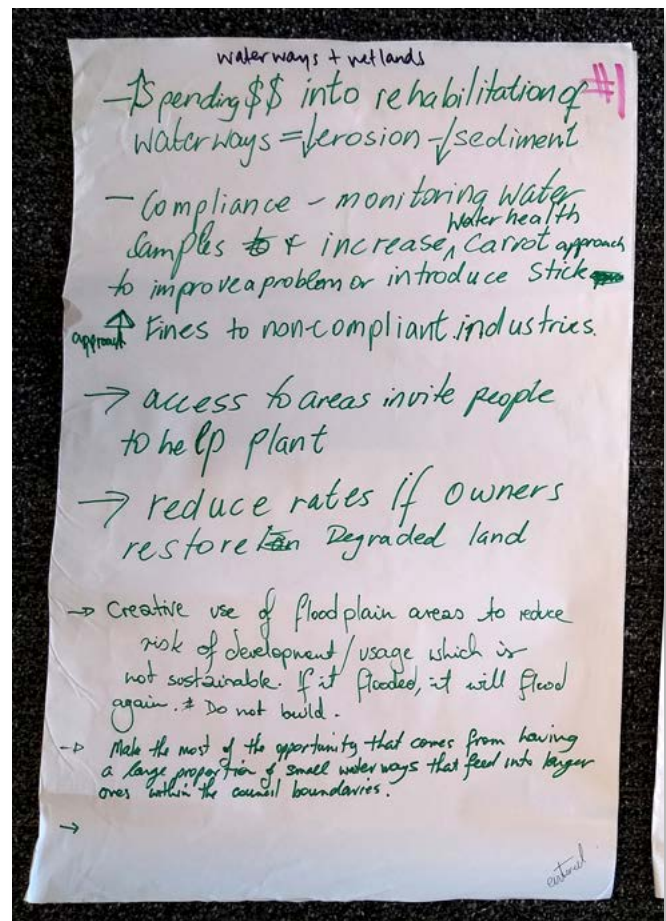 waterways + wetlands
#1
- ↑Spending $$ into rehabilitation of
waterways = ↓erosion - ↓sediment
- Compliance - monitoring water
Water health
samples & increase ^ carrot approach
to improve a problem or introduce stick
approach ↑ Fines to non-compliant industries.
→ access to areas invite people
to help plant
→ reduce rates if owners
restore Degraded land
→ Creative use of floodplain areas to reduce
risk of development/usage which is
not sustainable. If it flooded, it will flood
again. * Do not build.
→ Make the most of the opportunity that comes from having
a large proportion of small waterways that feed into larger
ones within the council boundaries.
→
entered